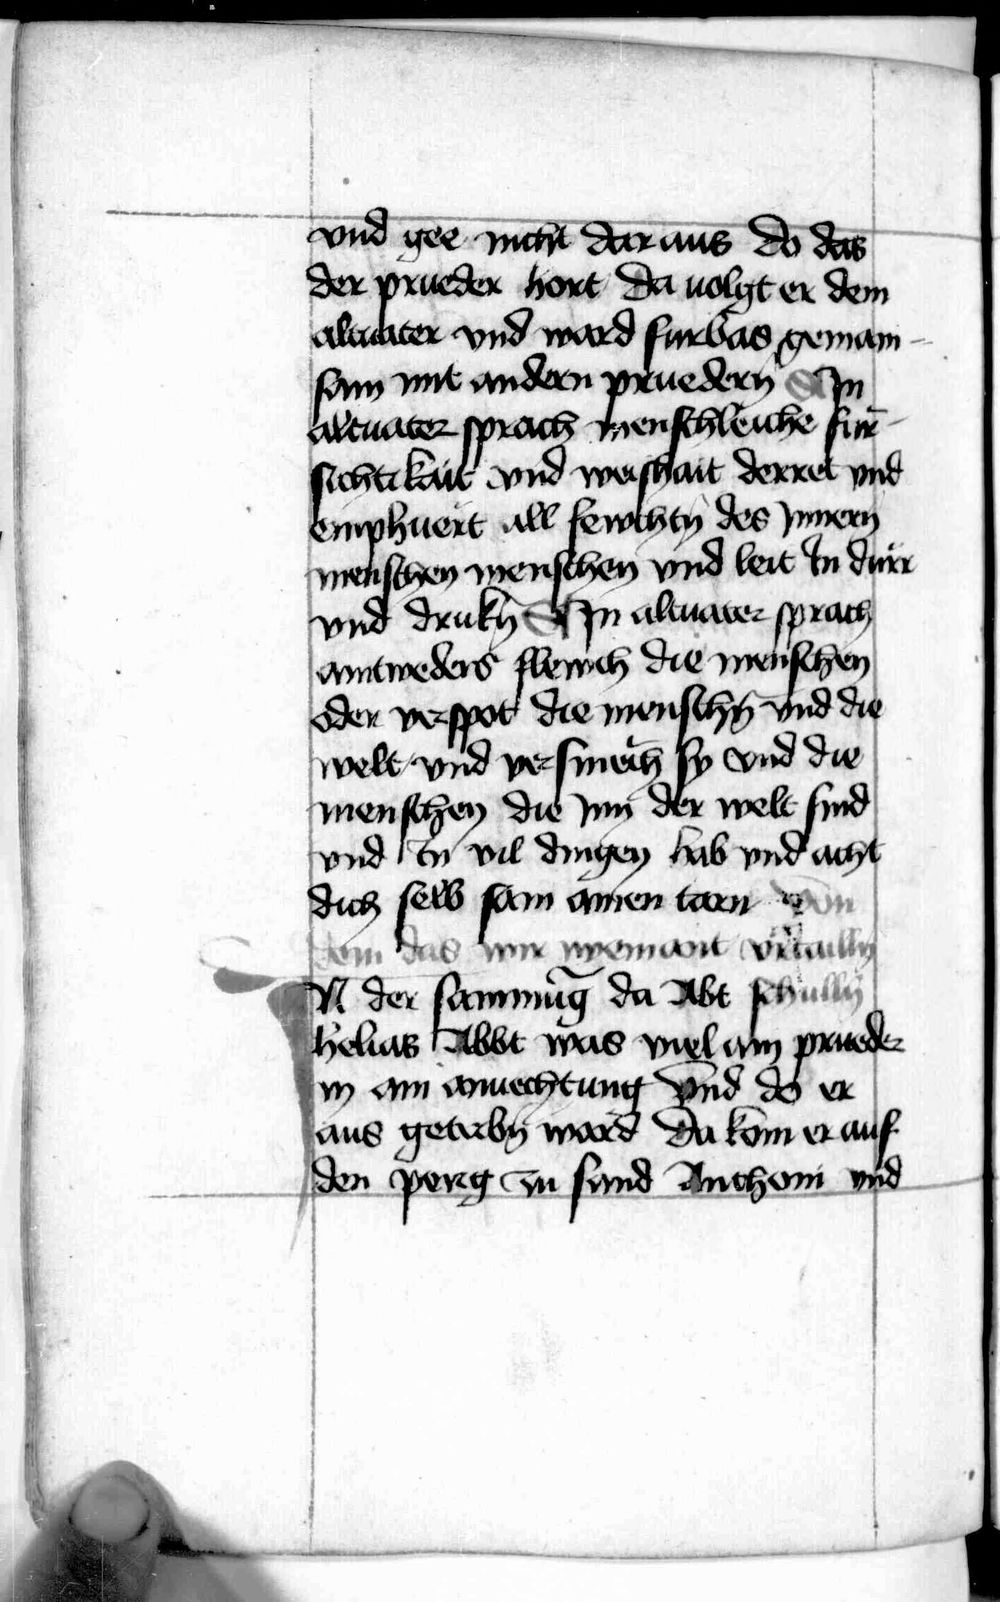 vnd gee nicht dar aus Do das
der prueder hort Da volgt er dem
altuater vnd ward furbas gemain-
sam mit andern pruedern̄ Ain
altuater sprach menschleiche fur-
sichtikait vnd weishait derret vnd
emphuert all fewchtn̄ des Innern̄
menschen menschen vnd leit In dürr
vnd drukn̄ Ain altuater sprach
aintweders flewch die menschen
oder verspot die menschn̄ vnd die
welt vnd versmäch sy vnd die
menschen die Inn der welt sind
vnd In vil dingen hab vnd acht
dich selb sam ainen torn Von
dem das wir niemant vrtailln̄
N der sammūg da Abt schulln̄
helias Abbt was viel ain prueder
in ain anuechtung Vnd do er
aus getribn̄ ward Da kom er auf
den perig zu sand Anthoni vnd